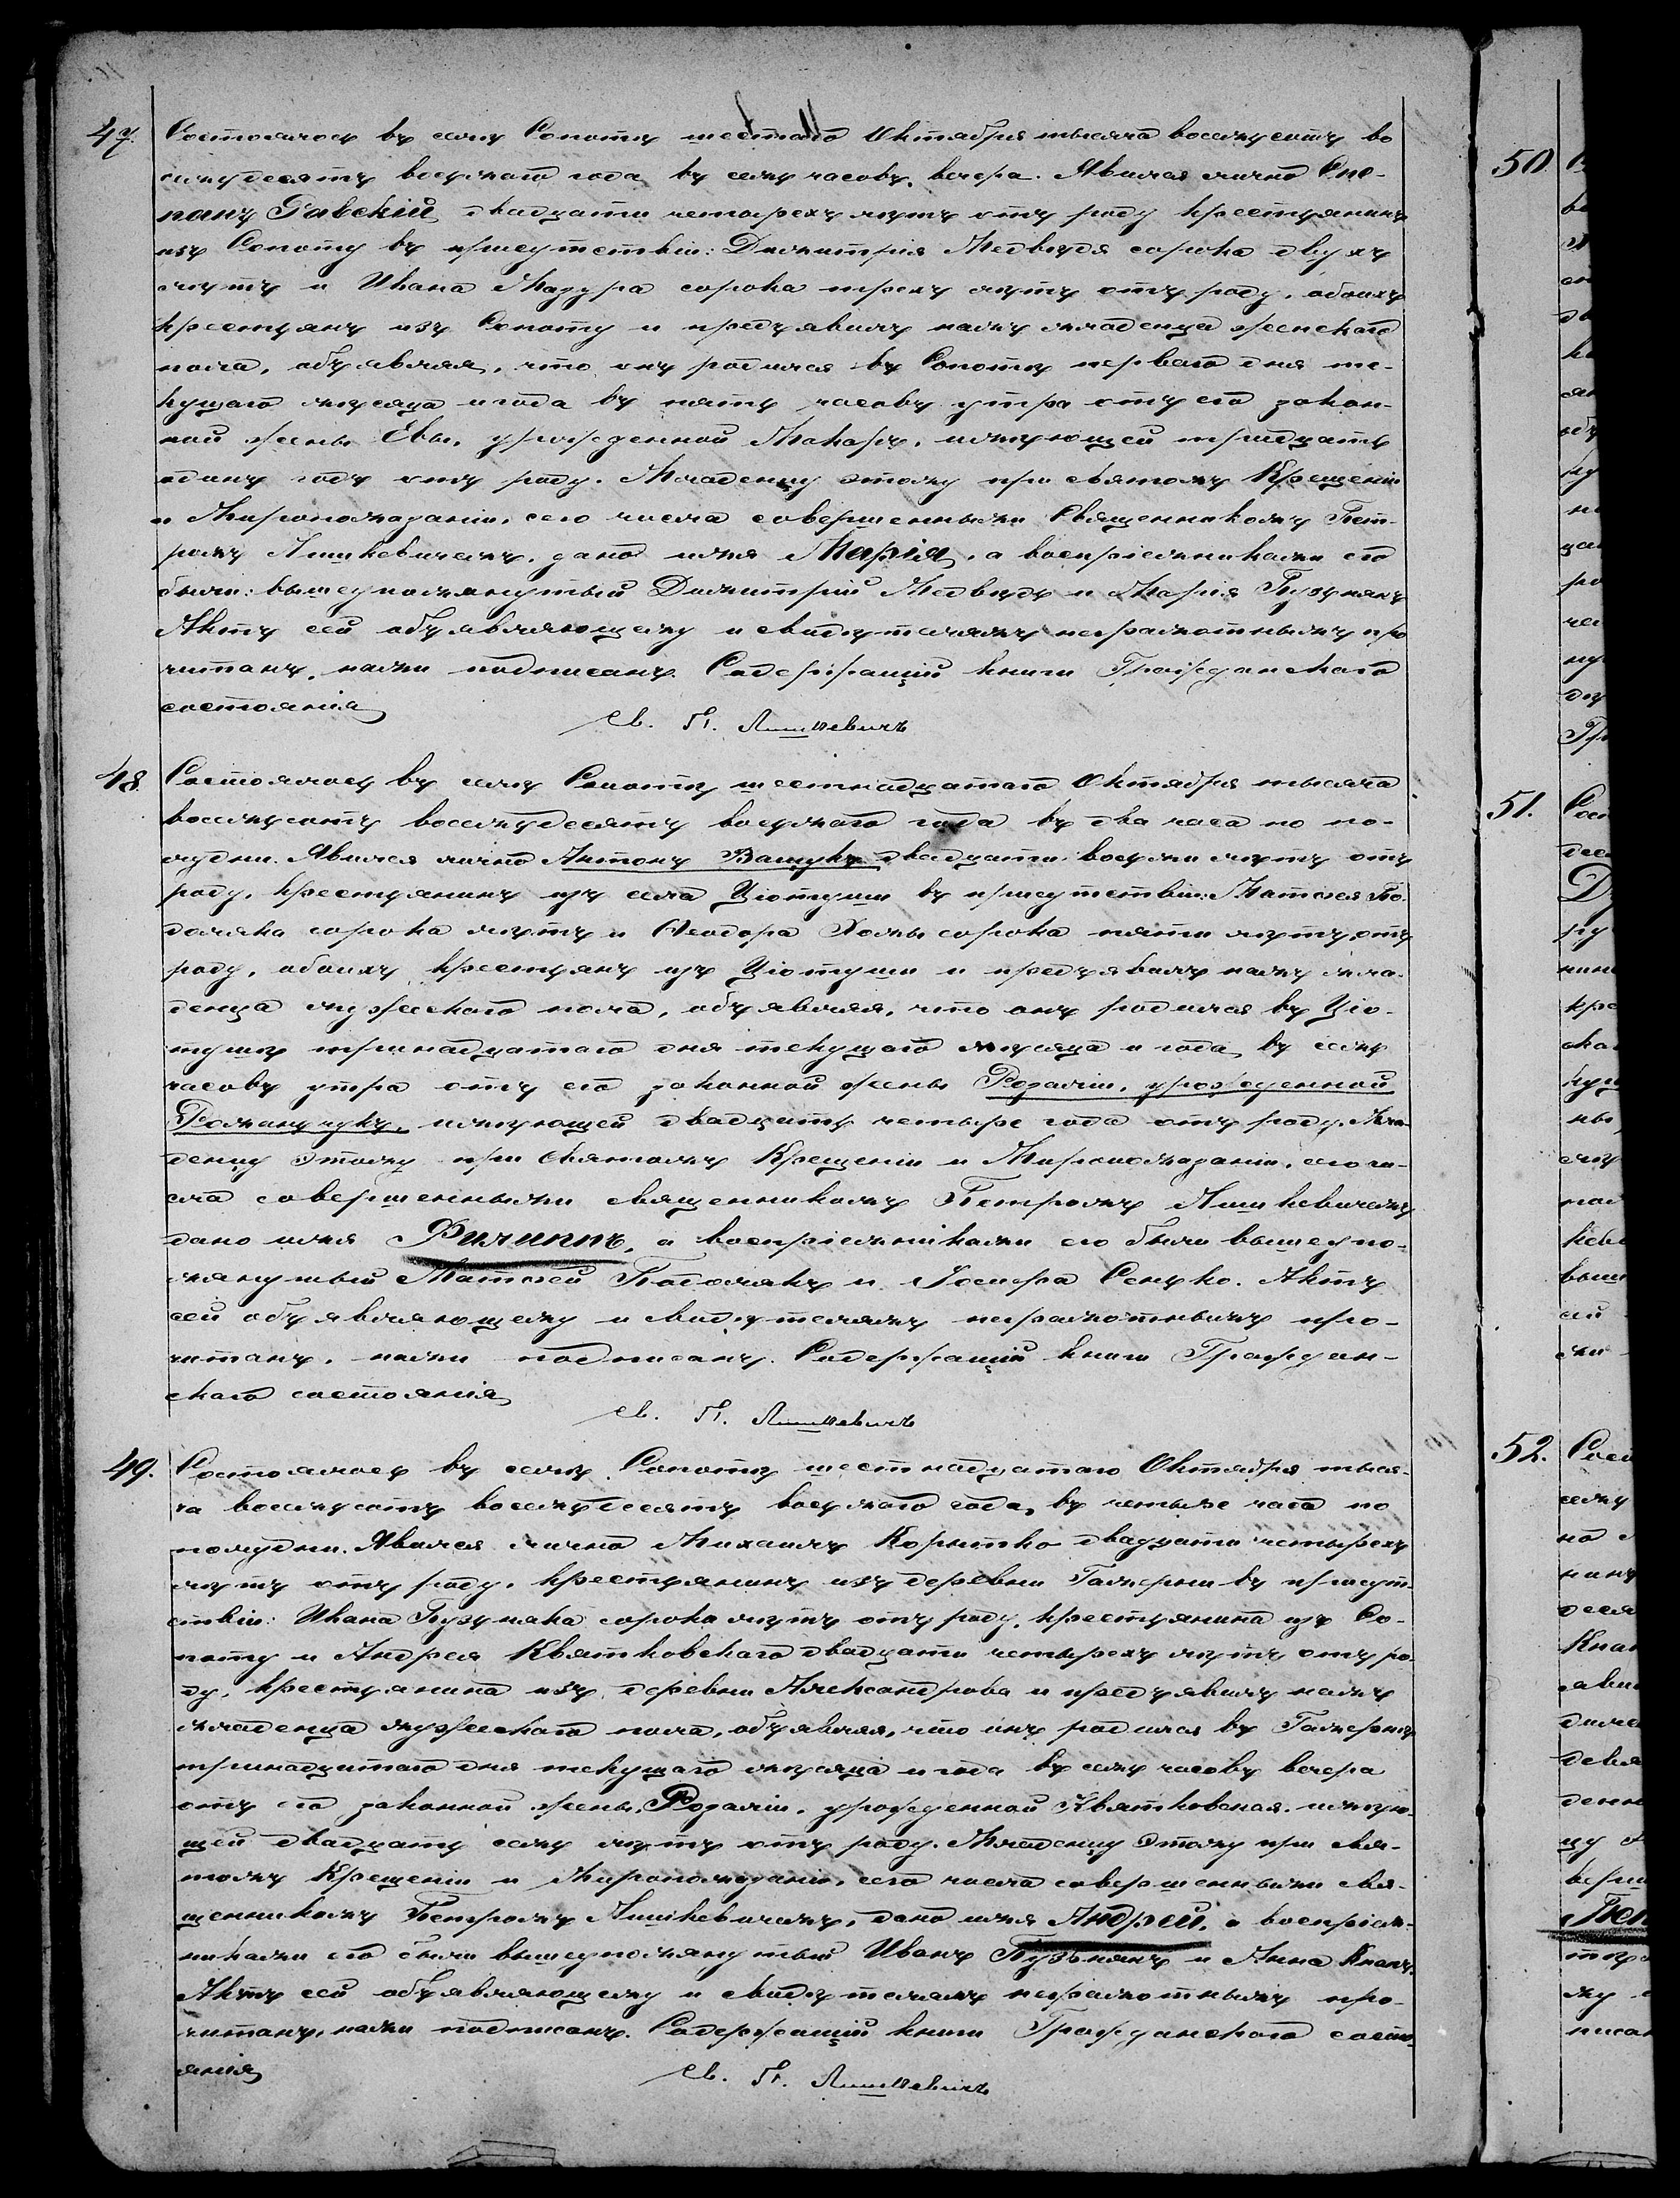 47.
Состоялось въ селѣ Сопотѣ шестаго Октября тысяча восемьсотъ во
семьдесятъ восьмаго года въ семь часовъ вечера. Явился лично Сте-
панъ Равскій двадцати четырехъ лѣтъ отъ роду крестьянинъ
изъ Сопоту въ присутствіи: Дмитрія Медвѣдя сорока двухъ
лѣтъ и Ивана Мазура сорока трехъ лѣтъ отъ роду, обоихъ
крестьянъ изъ Сопоту и предъявилъ намъ младенца женскаго
пола, объявляя, что онъ родился въ Сопотѣ перваго дня те-
кущаго мѣсяца и года въ пять часовъ утра отъ его закон-
ной жены Евы, урожденной Махаръ, имѣющей тридцать
одинъ годъ отъ роду. Младенцу этому при Святомъ Крещеніи
и Миропомазаніи, сего числа совершенными Священникомъ Пет-
ромъ Лишкевичемъ, дано имя Марія, а воспріемниками его
были: вышеупомянутый Дмитрій Медвѣдь и Марія Пузьнякъ
Актъ сей объявляющему и свидѣтелямъ неграмотнымъ про
читанъ, нами подписанъ. Содержащій книги Гражданскаго
состоянія
Св. П. Лишкевичъ
48.
Состоялось въ селѣ Сопотѣ шестнадцатаго Октября тысяча
восемьсотъ восемьдесятъ восьмаго года въ два часа по по-
лудни. Явился лично Антонъ Ващукъ двадцати восьми лѣтъ отъ
роду, крестьянинъ изъ села Цютуши въ присутствіи: Матѳея По-
доляка сорока лѣтъ и Ѳеодора Хомы сорока пяти лѣтъ отъ
роду, обоихъ крестьянъ изъ Цютуши и предъявилъ намъ мла-
денца мужескаго пола, объявляя, что онъ родился въ Цю-
тушѣ тринадцатаго дня текущаго мѣсяца и года въ семь
часовъ утра отъ его законной жены Розаліи, урожденной
Романчукъ, имѣющей двадцать четыре года отъ роду. Мла-
денцу этому при Святомъ Крещеніи и Миропомазаніи, сего чи-
сла совершенными священникомъ Петромъ Лишкевичемъ
дано имя Филиппъ, а воспріемниками его были вышеупо-
мянутый Матѳей Подолякъ и Іосифа Сенько. Актъ
сей объявляющему и свидѣтелямъ неграмотнымъ про-
читанъ, нами подписанъ. Содержащій книги Граждан-
скаго состоянія
Св. П. Лишкевичъ
49.
Состоялось въ селѣ Сопотѣ шестнадцатаго Октября тыся-
ча восемьсотъ восемьдесятъ восьмаго года, въ четыре часа по
полудни. Явился лично Михаилъ Корытко двадцати четырехъ
лѣтъ отъ роду, крестьянинъ изъ деревни Гамерни въ присут-
ствіи: Ивана Пузьняка сорока лѣтъ отъ роду, крестьянина изъ Со-
поту и Андрея Квятковскаго двадцати четырехъ лѣтъ отъ ро-
ду, крестьянина изъ деревни Александрова и предъявилъ намъ
младенца мужескаго пола, объявляя, что онъ родился въ Гамернѣ
тринадцатаго дня текущаго мѣсяца и года въ семь часовъ вечера
отъ его законной жены Розаліи, урожденной Квятковская, имѣю-
щей двадцать семь лѣтъ отъ роду. Младенцу этому при Свя-
томъ Крещеніи и Миропомазаніи, сего числа совершенными Свя-
щенникомъ Петромъ Лишкевичемъ, дано имя Андрей, а воспріем-
никами его были вышеупомянутый Иванъ Пузьнякъ и Анна Кнапъ.
Актъ сей объявляющему и свидѣтелямъ неграмотнымъ про-
читанъ, нами подписанъ. Содержащій книги Гражданскаго состо-
янія
Св. П. Лишкевичъ
50.
51.
52.